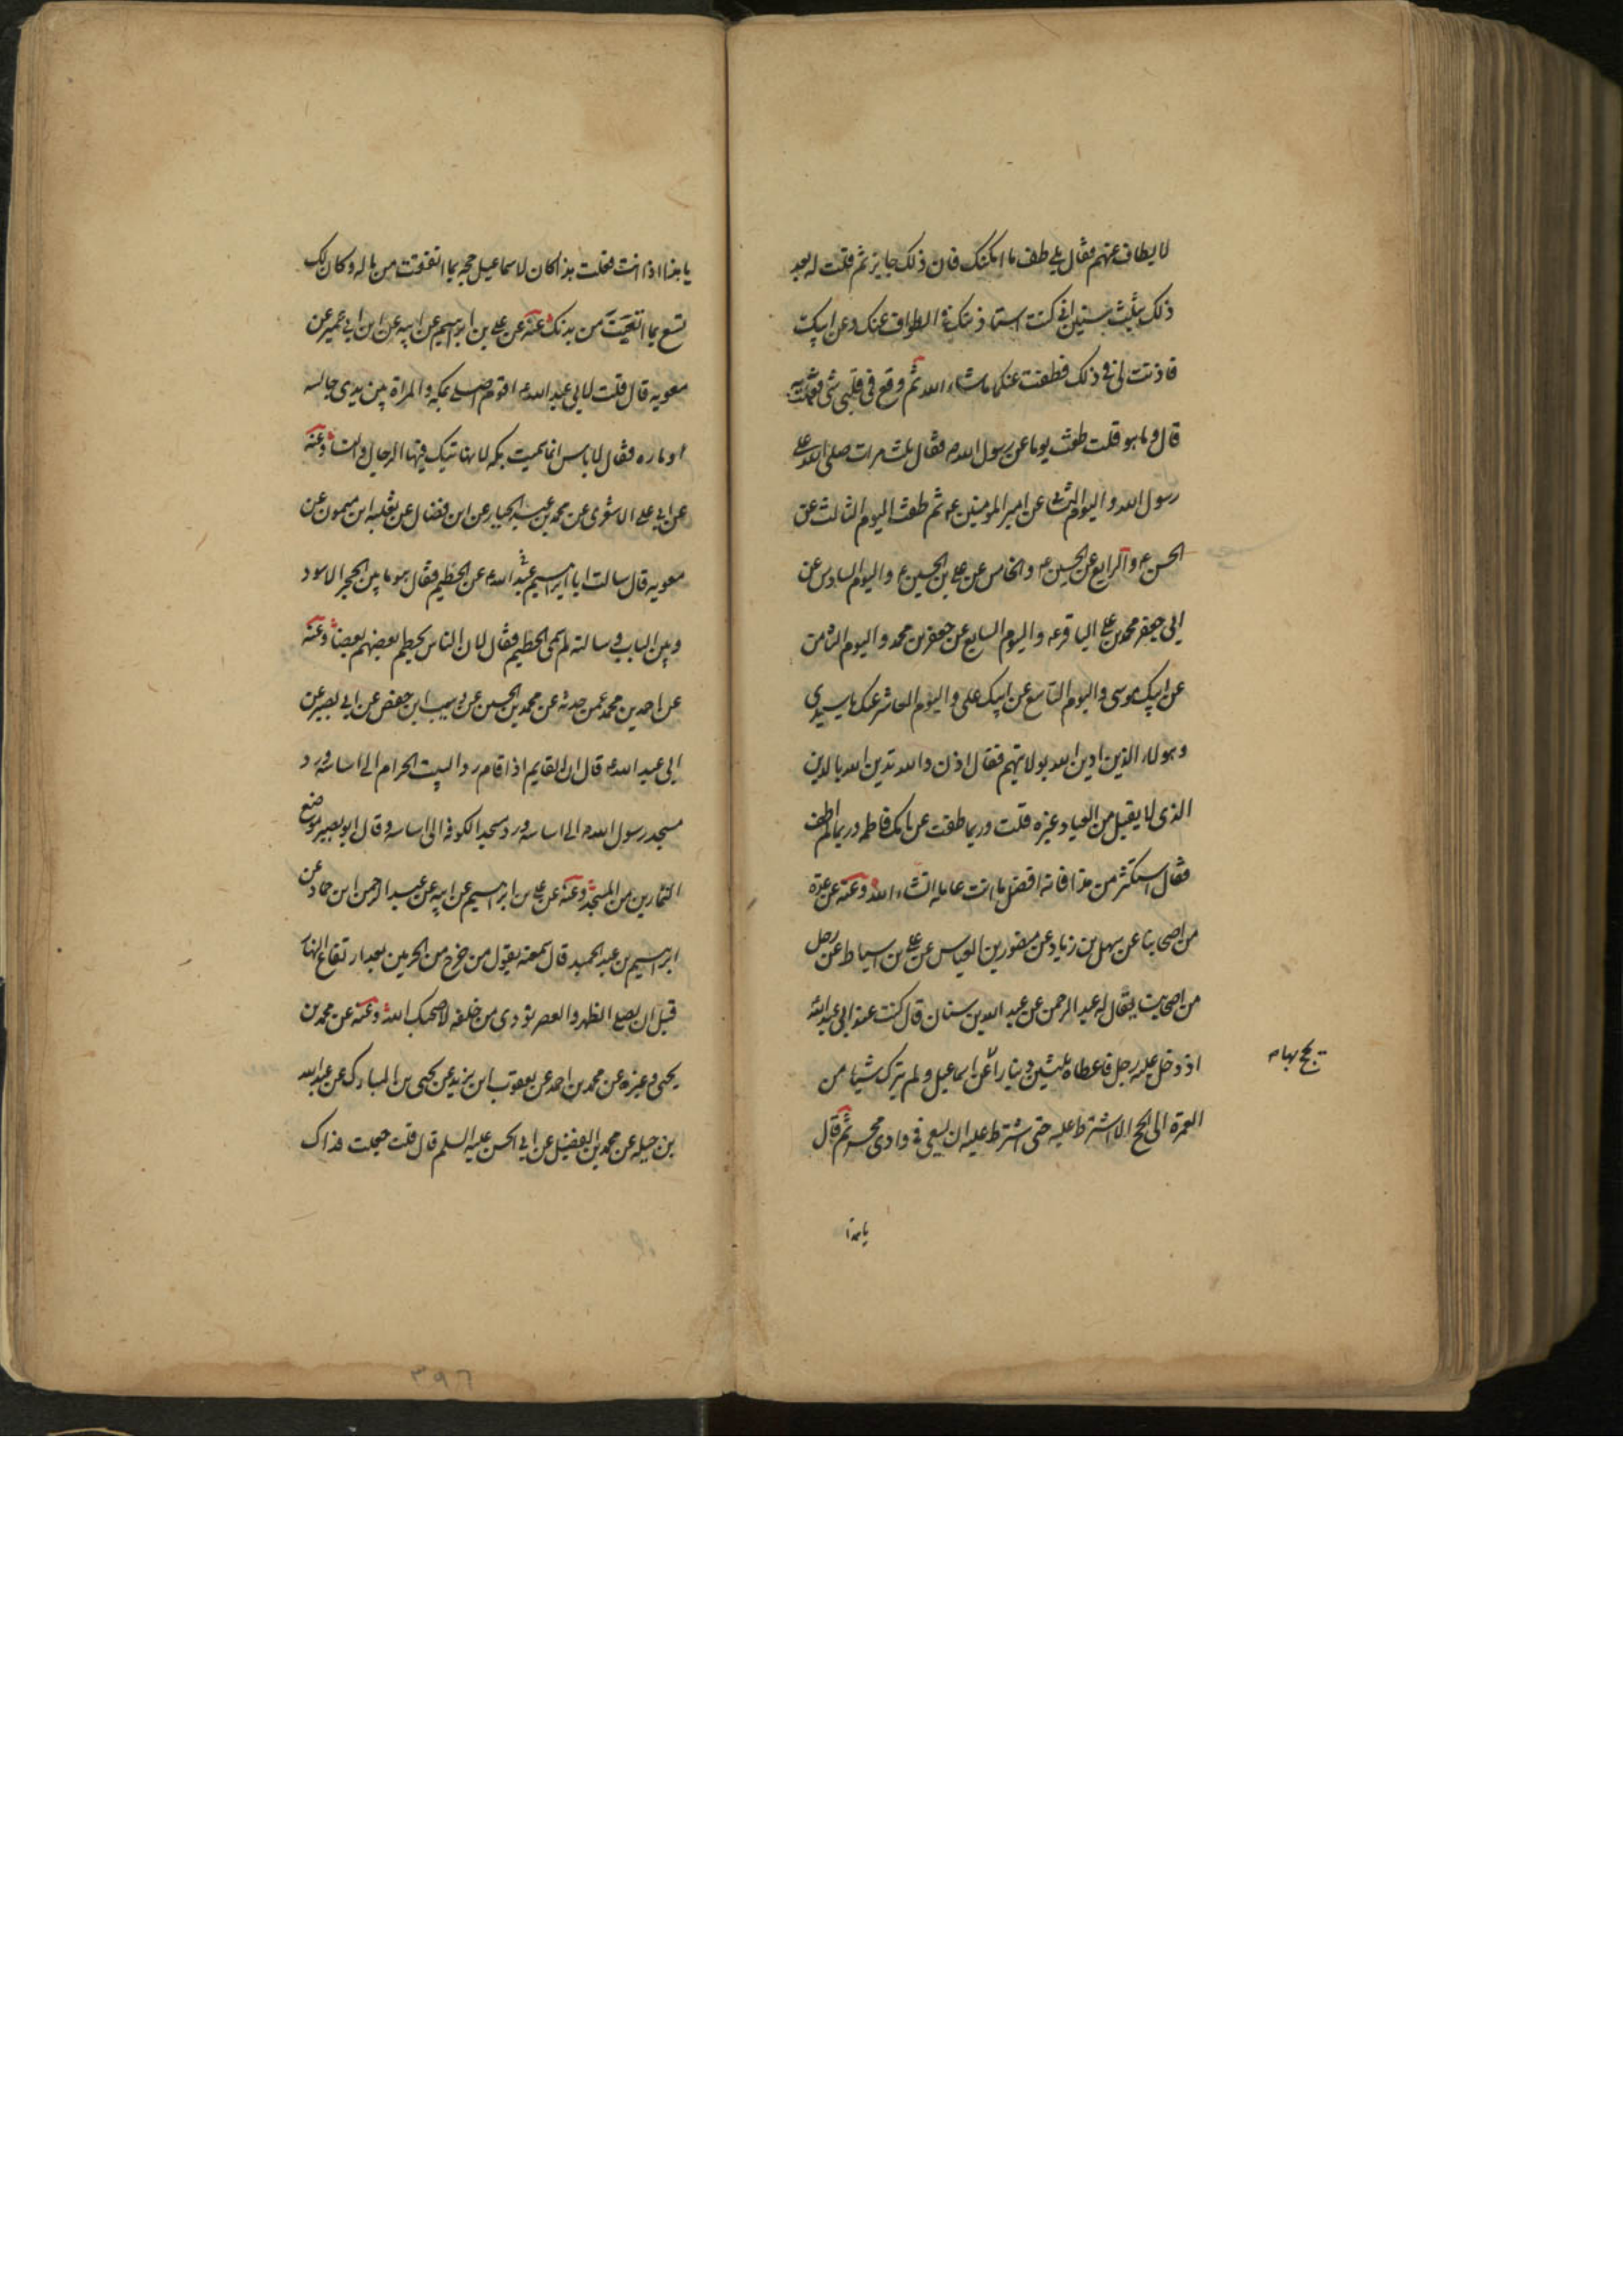 لا يطاف عنهم فقال بلى طف ما امكنك فان ذلك جايز ثم قلت له بعد
ذلك بثلث سنين اني كنت استاذنتك في الطواف عنك وعن ابيك
فاذنت لي في ذلك فطفت عنكما ما شاء الله ثم وقع في قلبي شي فعملت به
قال وما هو قلت طفت يوما عن رسول الله فقال ثلث مرات صلى الله على
رسول الله واليوم الثاني عن امير المومنين ثم طفت اليوم الثالث عن
الحسن ع والرابع عن الحسين ع والخامس عن علي بن الحسين ع واليوم السادس عن
ابي جعفر محمد بن علي الباقر ع واليوم السابع عن جعفر بن محمد واليوم الثامن
عن ابيك موسى واليوم التاسع عن ابيك علي واليوم العاشر عنك يا سيدي
وهولاء الذين ادين الله بولايتهم فقال اذن والله تدين الله بالدين
الذي لا يقبل من العباد غيره قلت وربما طفت عن امك فاطمه وربما لم اطف
فقال استكثر من هذا فانه افضل ما انت عامله انشاء الله وعنه عن عدة
من اصحابنا عن سهل بن زياد عن منصور بن العباس عن علي بن اسباط عن رجل
من اصحابنا يقال له عبد الرحمن عن عبد الله بن سنان قال كنت عند ابي عبد الله
اذ دخل عليه رجل فاعطاه ثلثين دينارا عن اسماعيل ولم يترك شيئا من
يحج بها م
العمرة الى الحج الا اشترط عليه حتى اشترط عليه ان يسعى في وادي محسر ثم قال
يا هذا
يا هذا اذا انت فعلت هذا كان لاسماعيل حجه بما انفقت من ماله وكان لك
تسع بما اتعبت من بدنك وعنه عن علي بن ابرهيم عن ابيه عن ابن ابي عمير عن
معويه قال قلت لابي عبد الله ع اقوم اصلي بمكه والمراة بين يدي جالسه
او ماره فقال لا باس انما سميت بكه لانها تبك فيها الرجال والنسا وعنه
عن ابي علي الاشعري عن محمد بن عبد الجبار عن ابن فضال عن ثعلبه ابن ميمون عن
معويه قال سالت ابا عبد الله ع عن الحطيم فقال هو ما بين الحجر الاسود
وبين الباب وسالته لم سمى الحطيم فقال لان الناس يحطم بعضهم بعضا وعنه
عن احمد بن محمد عمن حدثه عن محمد بن الحسين عن وهيب ابن حفص عن ابي بصير عن
ابي عبد الله ع قال ان القايم اذا قام رد البيت الحرام الى اساسه ورد
مسجد رسول الله الى اساسه ورد مسجد الكوفه الى اساسه وقال ابو بصير موضع
التمارين من المسجد وعنه عن علي بن ابرهيم عن ابيه عن عبد الرحمن ابن حماد عن
ابرهيم بن عبد الحميد قال سمعته يقول من خرج من الحرمين بعد ارتفاع النهار
قبل ان يصلي الظهر والعصر نودي من خلفه لا صحبك الله وعنه عن محمد بن
يحيى وغيره عن محمد بن احمد عن يعقوب ابن يزيد عن يحيى بن المبارك عن عبد الله
بن جبله عن محمد بن الفضيل عن ابي الحسن عليه السلم قال قلت جعلت فداك